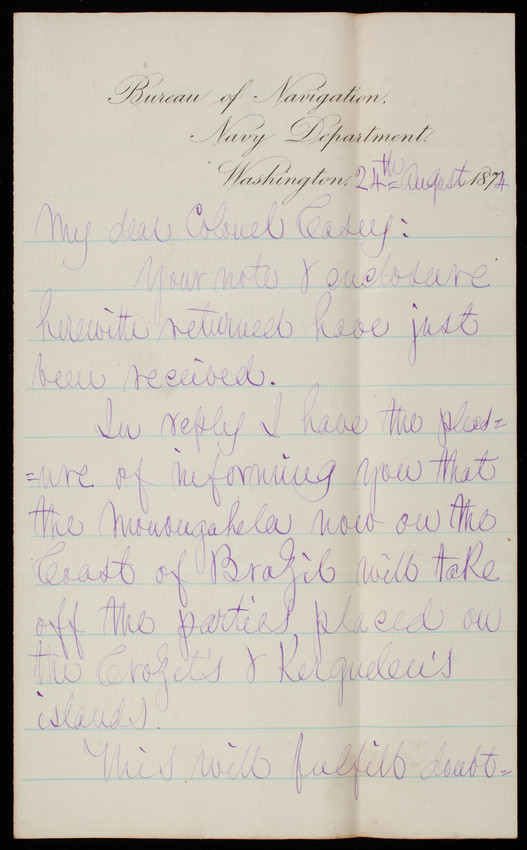 Bureau of Navigation.
Navy Department.
Washington, 24th August 1874
My dear Colonel Casey:
Your note & enclosure
herewith returned have just
been received.
In reply I have the pleas=
=ure of informing you that
the Monongahela now on the
Coast of Brazil will take
off the parties placed on
the Crozet's & Kerguelen's
islands.
This will fulfill doubt=